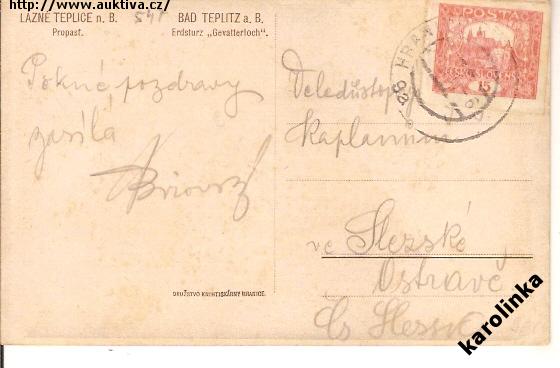 http://www.auktiva.cz/
LÁZNĚ TEPLICE n. B.
Propasť.
BAD TEPLITZ a. B.
Erdsturz „Gevatterloch“.
541
POSTA
ČESKO-SLOVENSKÁ
HRAN
Pěkné pozdravy
zasílá
Veledůstojný
Kaplanum
ve Slezské
Ostravě
Čs Slezsko
DRUŽSTVO KNIHTISKÁRNY HRANICE.
karolinka